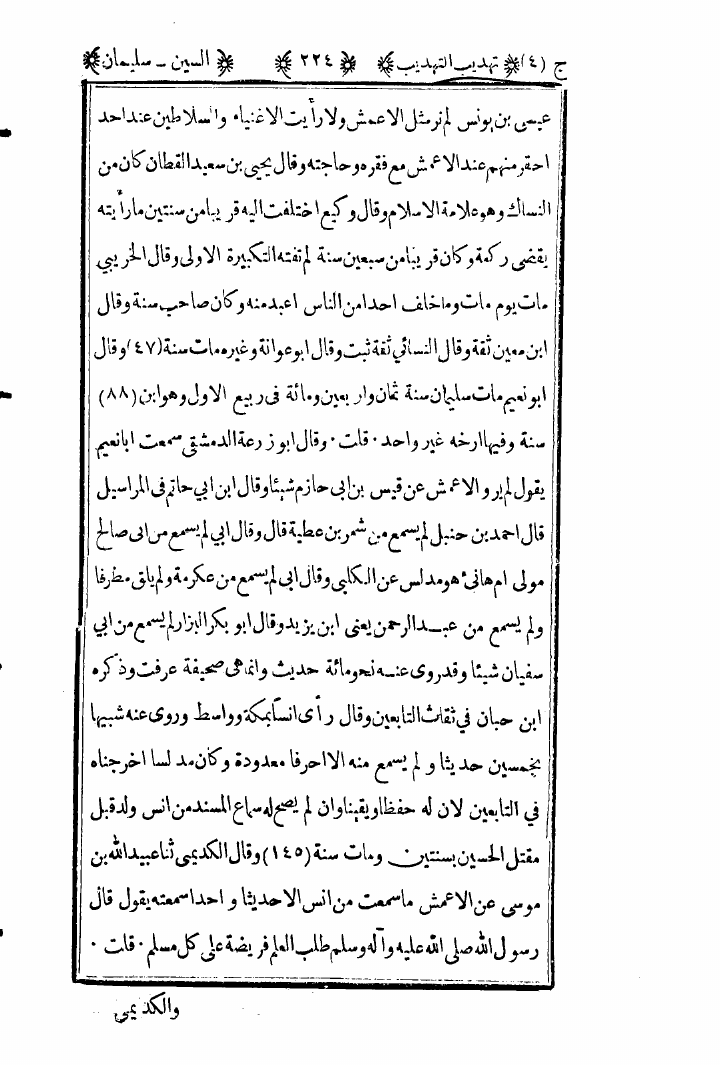 ج (٤) تهذيب التهذيب ٢٢٤ السين - سليمان
عيسى بن يونس لم نر مثل الاعمش ولا رأيت الاغنياء والسلاطين عند احد
احقر منهم عند الاعمش مع فقره وحاجته وقال يحيى بن سعيد القطان كان من
النساك وهو علامة الاسلام وقال وكيع اختلفت اليه قريبا من سنتين ما رأيته
يقضى ركعة وكان قريبا من سبعين سنة لم تفته التكبيرة الاولى وقال الخريبي
مات يوم مات وما خلف احدا من الناس اعبد منه وكان صاحب سنة وقال
ابن معين ثقة وقال النسائي ثقة ثبت وقال ابو عوانة وغيره مات سنة (٤٧) وقال
ابو نعيم مات سليمان سنة ثمان واربعين ومائة فى ربيع الاول وهو ابن (٨٨)
سنة وفيها ارخه غير واحد · قلت · وقال ابو زرعة الدمشقى سمعت ابا نعيم
يقول لم يرو الاعمش عن قيس بن ابى حازم شيئا وقال ابن ابي حاتم فى المراسيل
قال احمد بن حنبل لم يسمع من شمر بن عطية قال وقال ابي لم يسمع من ابى صالح
مولى ام هانئ هو مدلس عن الكلبى وقال ابى لم يسمع من عكرمة ولم يلق مطرفا
ولم يسمع من عبد الرحمن يعنى ابن يزيد وقال ابو بكر البزار لم يسمع من ابي
سفيان شيئا وقد روى عنه نحو مائة حديث وانما هى صحيفة عرفت وذكره
ابن حبان في ثقات التابعين وقال رأى انسا بمكة وواسط وروى عنه شبيها
بخمسين حديثا و لم يسمع منه الا احرفا معدودة وكان مدلسا اخرجناه
في التابعين لان له حفظا ويقينا وان لم يصح له سماع المسند من انس ولد قبل
مقتل الحسين بسنتين ومات سنة (١٤٥) وقال الكديمى ثنا عبيد الله بن
موسى عن الاعمش ما سمعت من انس الا حديثا و احدا سمعته يقول قال
رسول الله صلى الله عليه وآله وسلم طلب العلم فريضة على كل مسلم · قلت ·
والكديمى